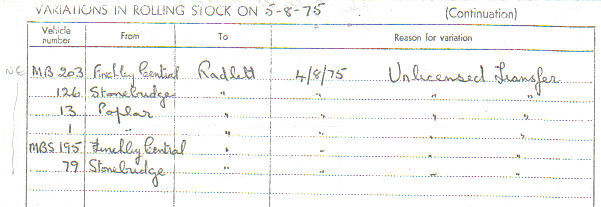 VARIATIONS IN ROLLING STOCK ON 5-8-75 (Continuation)
Vehicle number From To Reason for variation
NE MB 203 Finchley Central Radlett 4/8/75 Unlicensed Transfer
126 Stonebridge " " " "
13 Poplar " " " "
1 " " " " "
MBS 195 Finchley Central " " " "
79 Stonebridge " " " "